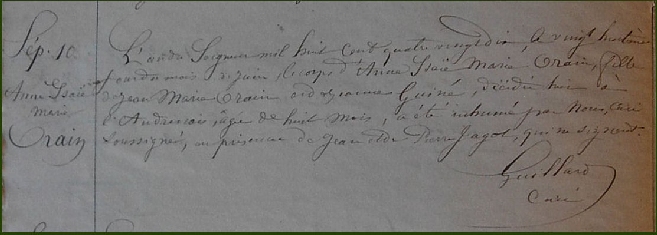 Sép. 10.
Anne Isaïe
marie
Orain
L'an du Seigneur mil huit cent quatre vingt dix, le vingt huitième
jour du mois de juin, le corps d'Anne Isaïe Marie Orain, fille
de Jean Marie Orain et de Jeanne Guiné, décédée hier à
l'Audrenais, âgée de huit mois, a été inhumé par Nous, Curé
soussigné, en présence de Jean et de Pierre Jagot, qui ne signent.
Guillard
Curé